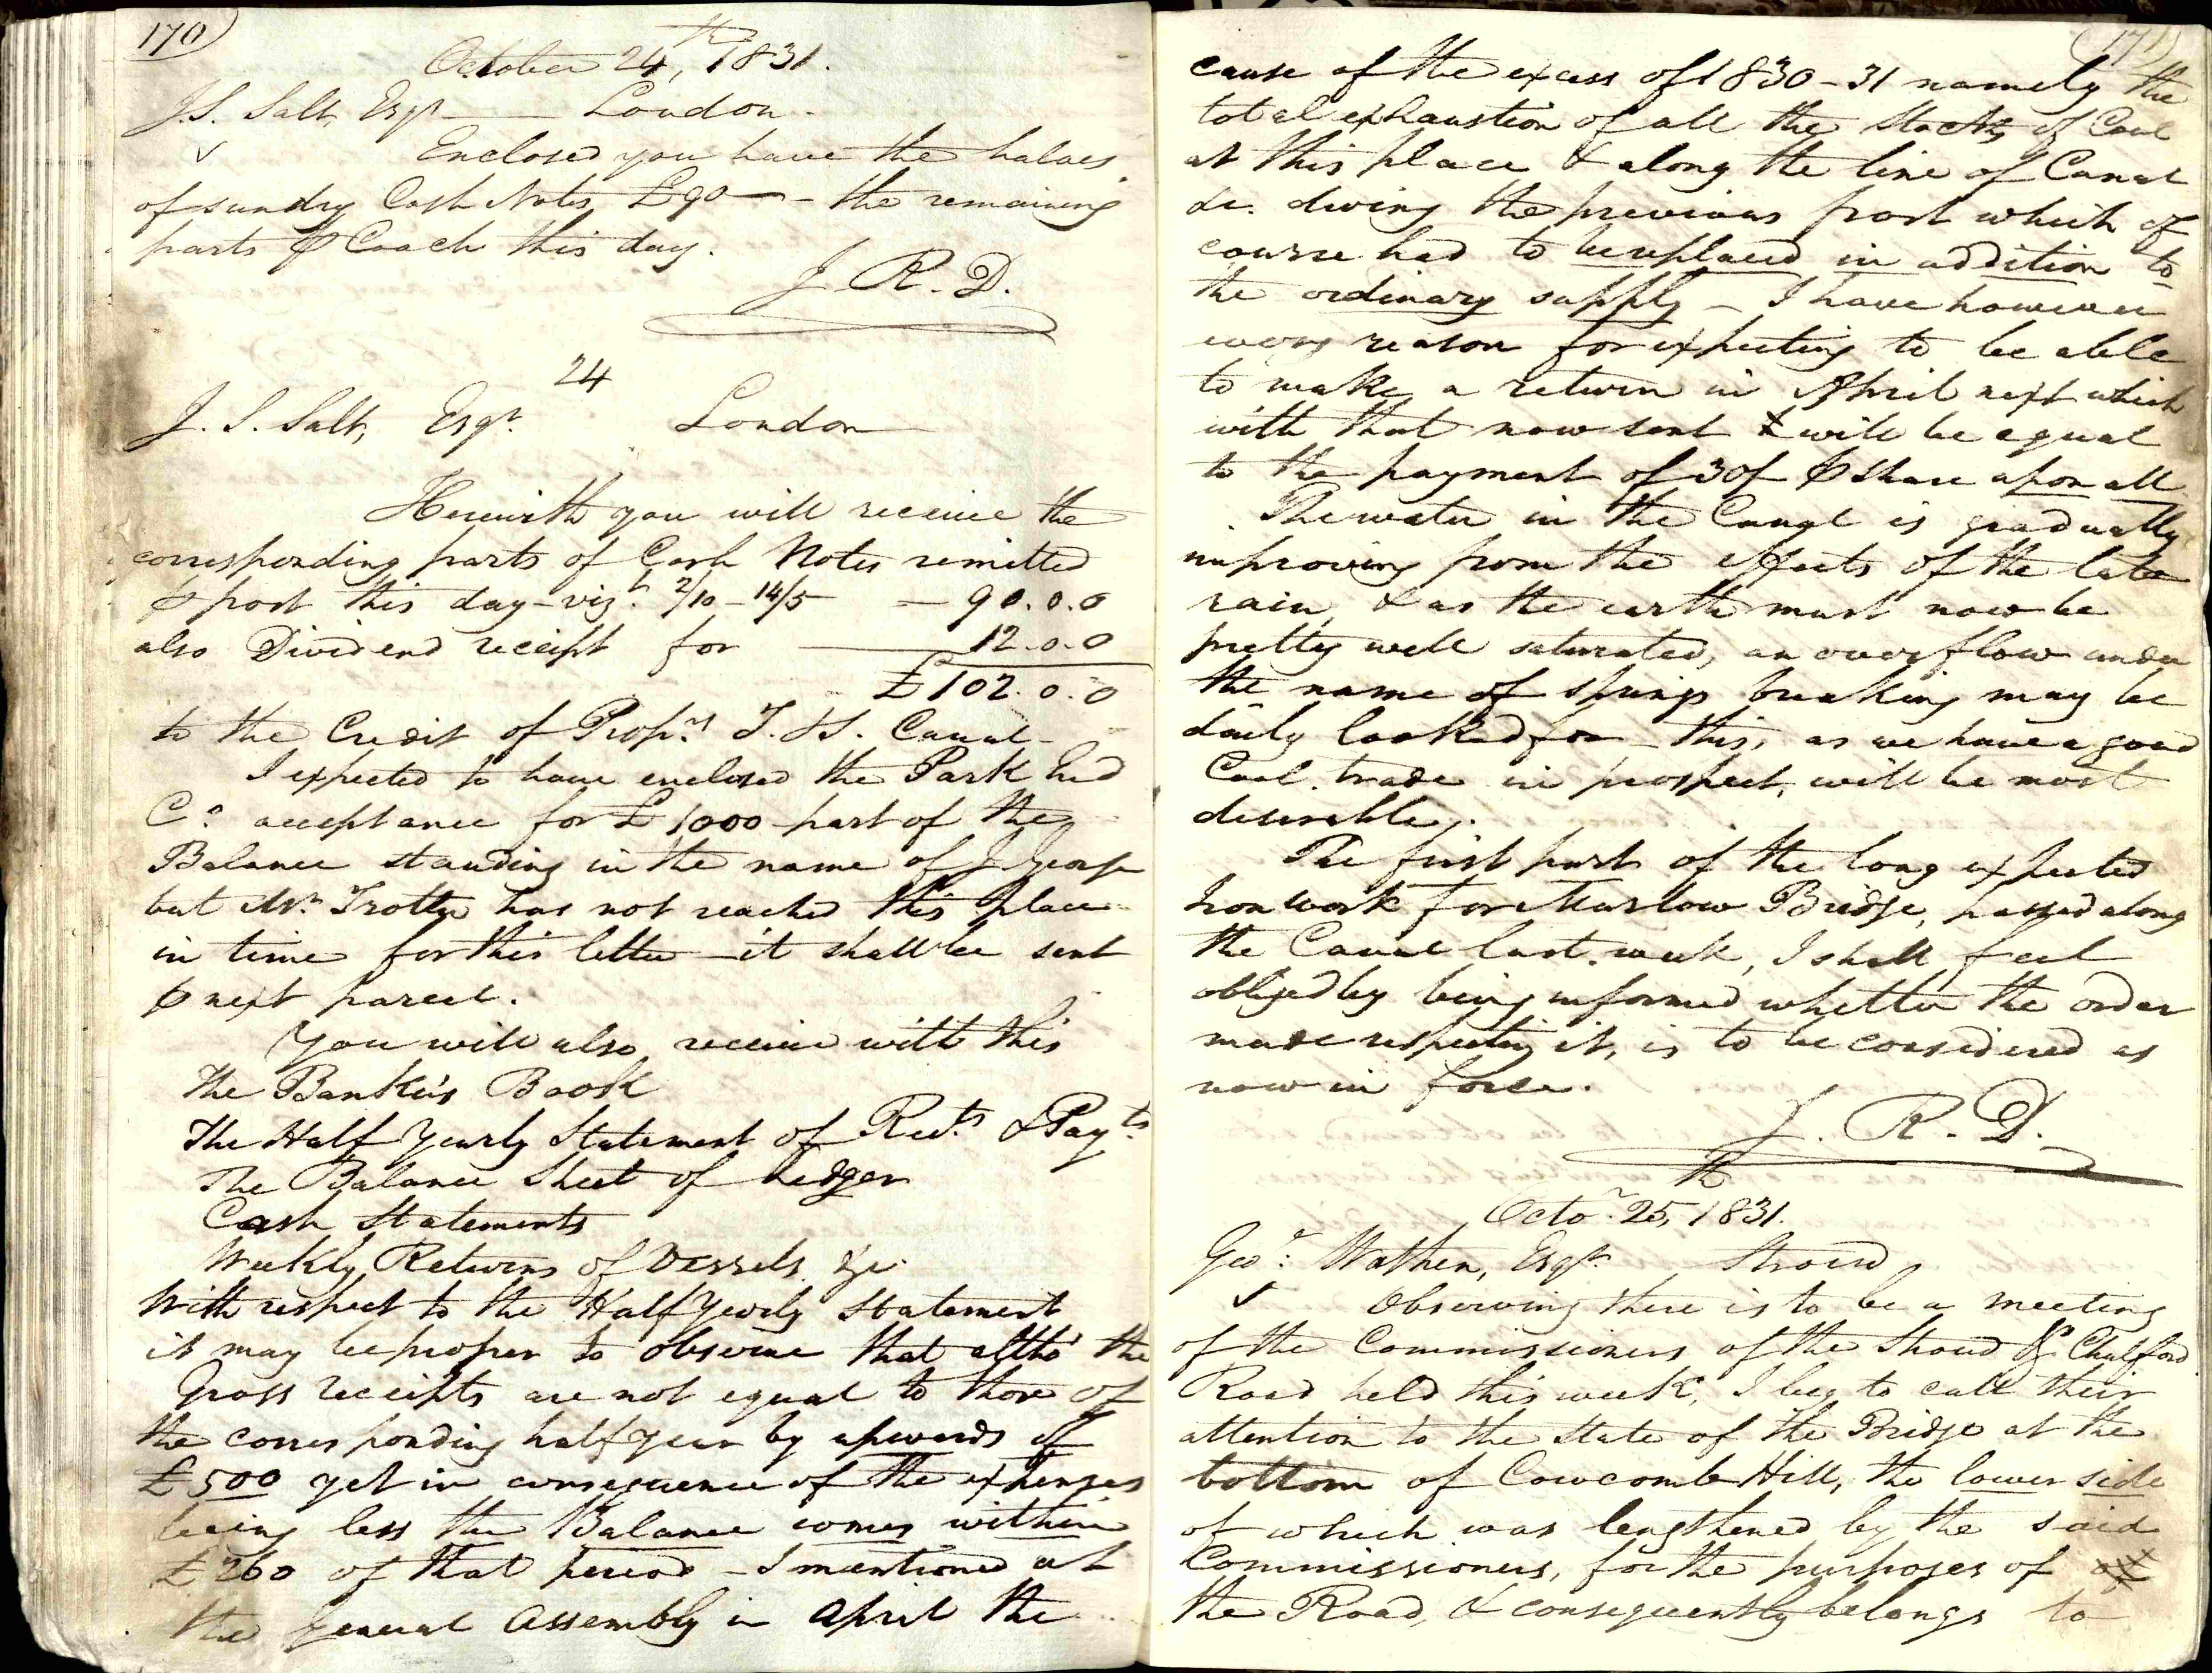 170
October 24th, 1831.
J.S. Salt, Esqr — London.
✓ Enclosed you have the halves
of sundry Cash Notes £90 — the remaining
parts ⅌ Coach this day.
J. R. D.
24
J. S. Salt, Esqr. London
Herewith you will receive the
corresponding parts of Cash Notes remitted
⅌ post this day - vizt. 2/10 - 14/5 — 90.0.0
also Dividend receipt for — 12.0.0
£102.0.0
to the Credit of Proprs T. & S. Canal
I expected to have enclosed the Park End
Co. acceptance for £1000 part of the
Balance standing in the name of J. George
but Mr. Trotter has not reached this place
in time for this letter — it shall be sent
⅌ next parcel.
You will also receive with this
the Banker's Book
The Half Yearly Statement of Rects & Payts.
The Balance Sheet of Ledger
Cash Statements
Weekly Returns of Vessels &c.
With respect to the Half Yearly Statement
it may be proper to observe that altho' the
Gross receipts are not equal to those of
the corresponding half year by upwards of
£500 yet in consequence of the expenses
being less the Balance comes within
£260 of that period — I mentioned at
the General Assembly in April the
171
cause of the excess of 1830-31 namely the
total exhaustion of all the Stocks of Coal
at this place & along the line of Canal
&c. during the previous frost which of
course had to be replaced in addition to
the ordinary supply — I have however
every reason for expecting to be able
to make a return in April next which
with that now sent will be equal
to the payment of 30/- ⅌ share upon all
The water in the Canal is gradually
improving from the effects of the late
rain, & as the earth must now be
pretty well saturated, an overflow under
the name of springs breaking may be
daily looked for — this, as we have a good
Coal trade in prospect, will be most
desirable.
The first part of the long expected
Iron work for Marlow Bridge, passed along
the Canal last week, I shall feel
obliged by being informed whether the order
made respecting it, is to be considered as
now in force.
J. R. D.
Octor. 25th, 1831.
Geoe. Wathen, Esqr. Stroud
✓ Observing there is to be a meeting
of the Commissioners of the Stroud & Chalford
Road held this week, I beg to call their
attention to the State of the Bridge at the
bottom of Cowcomb Hill, the lower side
of which was lengthened by the said
Commissioners, for the purposes of
the Road, & consequently belongs to